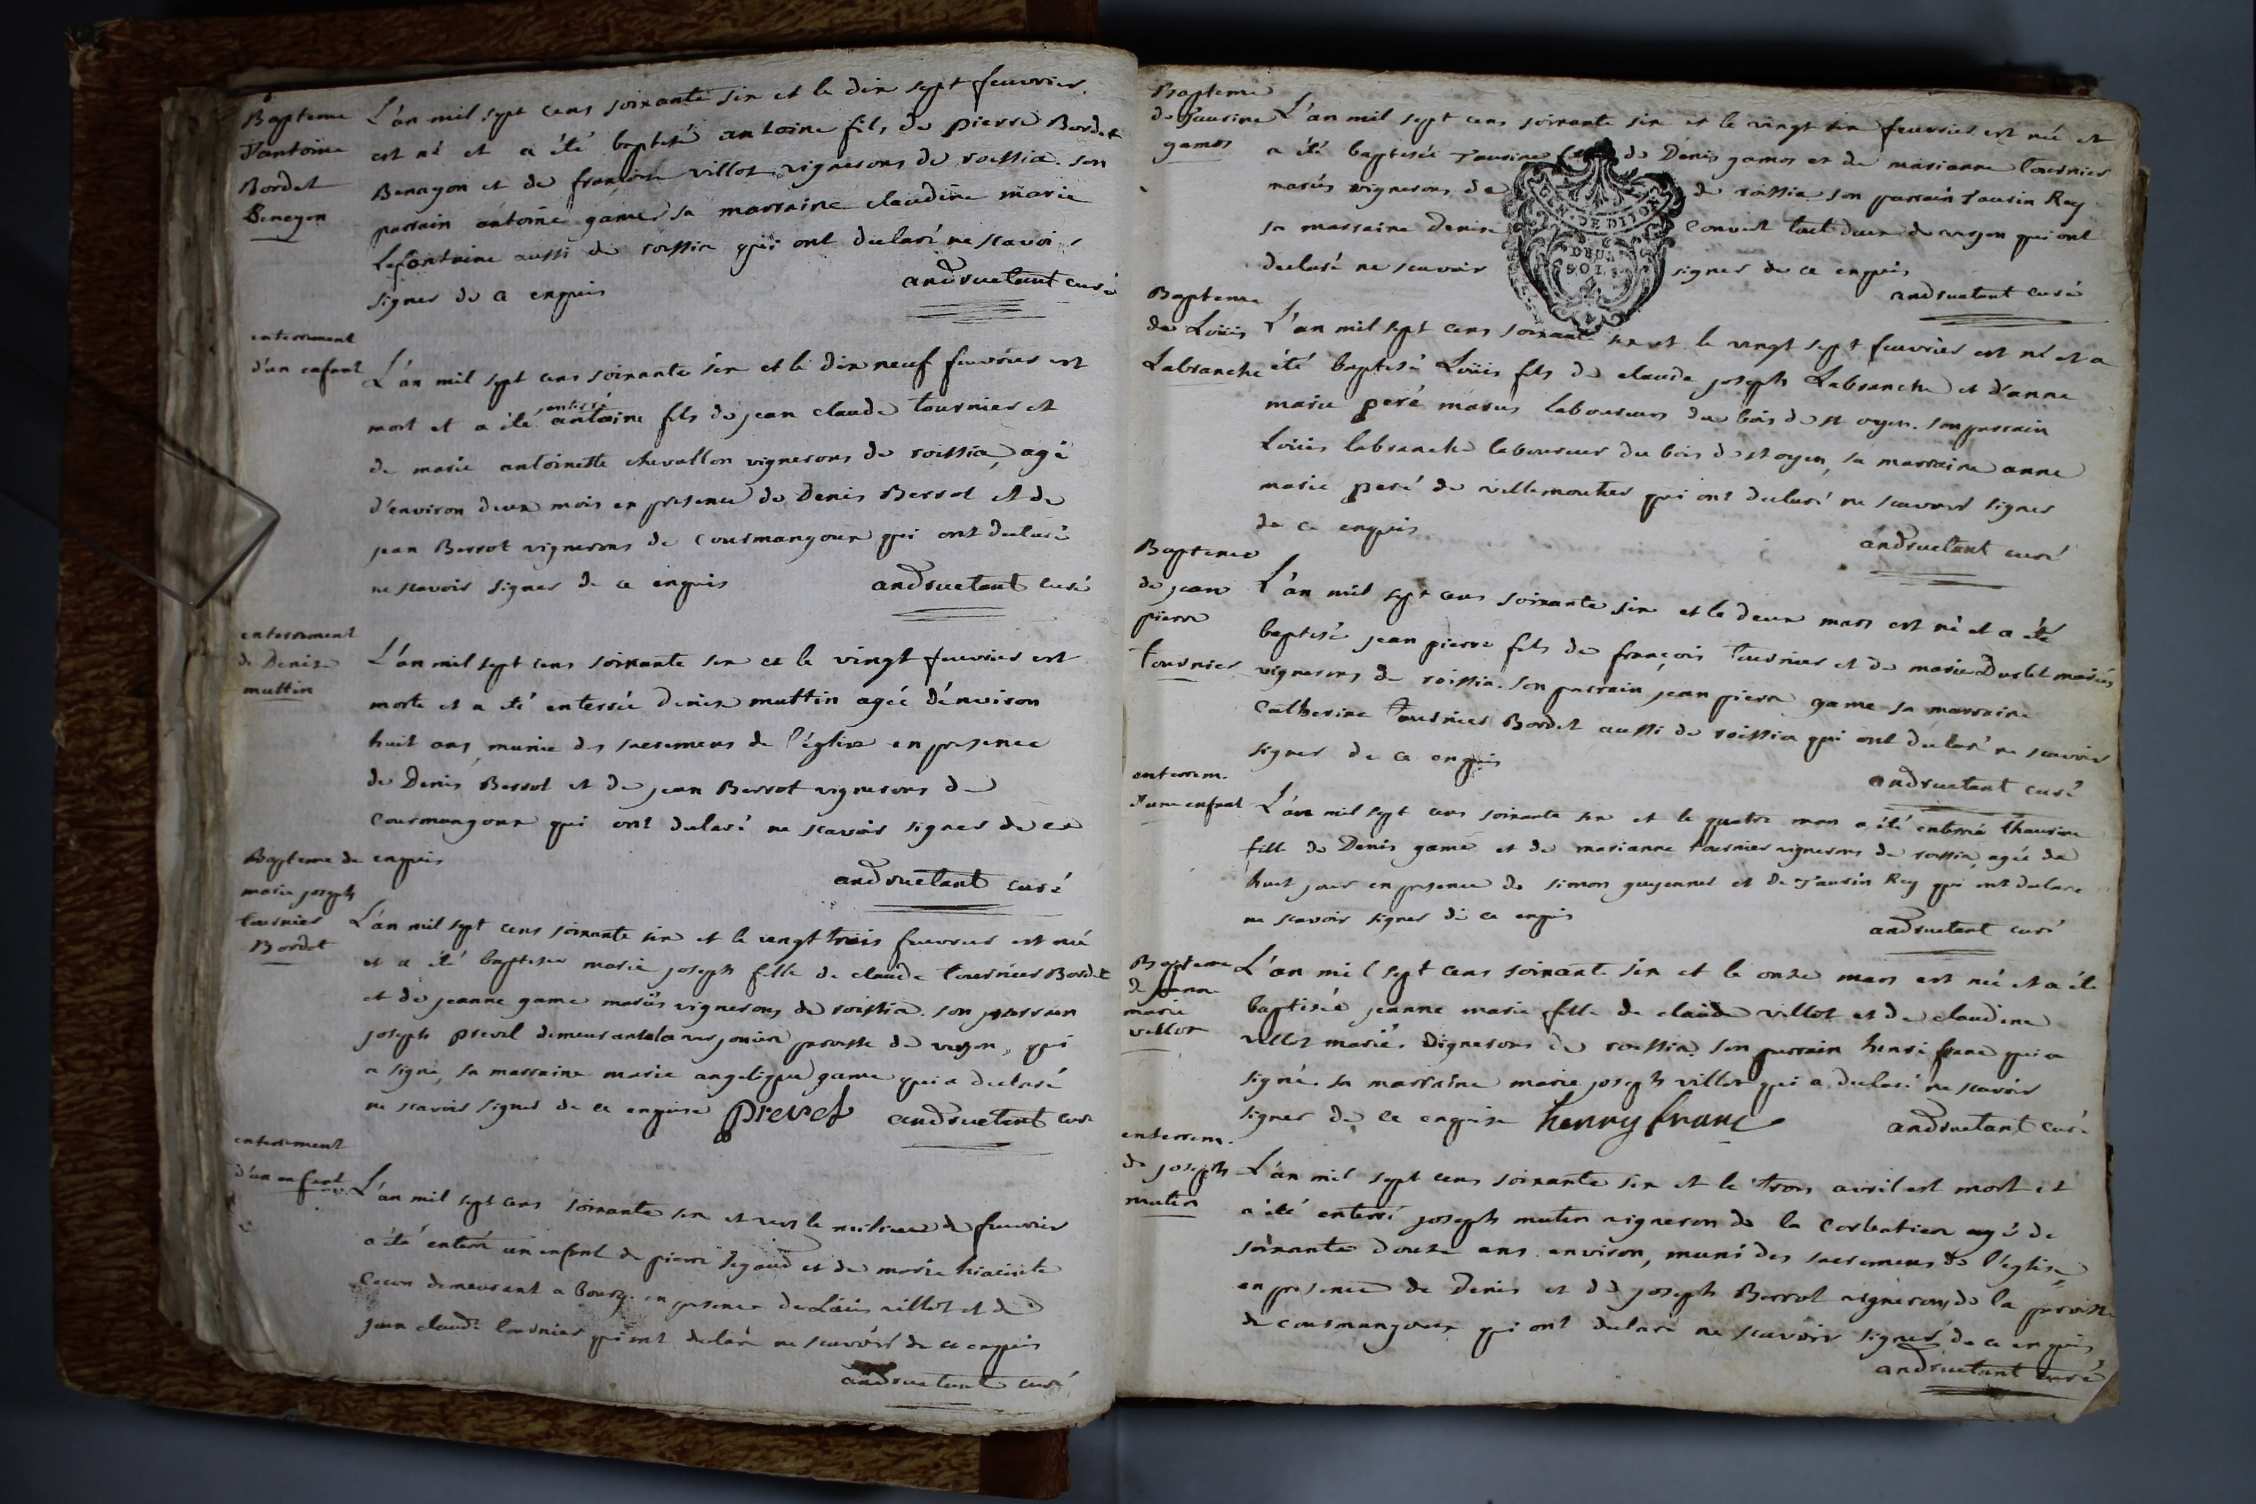 Bapteme
d'antoine
Bordet
Benayon
L'an mil sept cens soixante six et le dix sept feuvrier
est né et a été baptisé antoine fils de pierre Bordet
Benayon et de françoise villot vignerons de roissia. son
parrain antoine game sa marraine claudine marie
Lafontaine aussi de roissia qui ont declaré ne scavoir
signer de ce enquis
andruetant curé
enterrement
d'un enfant
L'an mil sept cens soixante six et le dix neuf feuvrier est
mort et a été enterré antoine fils de jean claude tournier et
de marie antoinette chevallon vignerons de roissia, agé
d'environ deux mois en presence de Denis Berrot et de
jean Berrot vignerons de Cousmangoux qui ont declaré
ne scavoir signer de ce enquis
andruetant curé
enterrement
de Denise
muttin
L'an mil sept cens soixante six et le vingt feuvrier est
morte et a été enterrée Denise muttin agée d'environ
huit ans, munie des sacremens de l'église en presence
de Denis Berrot et de jean Berrot vignerons de
Cousmangoux qui ont declaré ne scavoir signer de ce
enquis
andruetant curé
Bapteme de
marie joseph
tournier
Bordet
L'an mil sept cens soixante six et le vingt trois feuvrier est née
et a été baptisée marie joseph fille de claude tournier Bordet
et de jeanne game mariés vignerons de roissia. son parrain
joseph prevel demeurant a la parroisse de veyon, qui
a signé, sa marraine marie angelique game qui a declaré
ne scavoir signer de ce enquise prevel andruetant curé
enterrement
d'un enfant
L'an mil sept cens soixante six et vers le milieu de feuvrier
a été enterré un enfant de pierre segaud et de marie hiacinte
demeurant a bourg. en presence de Loüis villot et de
jean claude tournier qui ont declaré ne scavoir de ce enquis
andruetant curé
Bapteme
de Taurine
games
L'an mil sept cens soixante six et le vingt six feuvrier est née et
a été baptisée Taurine de Denis games et de marianne tournier
mariés vignerons de roissia son parrain taurin Rey
sa marraine Denise Convert tout deux de veyon qui ont
declaré ne scavoir signer de ce enquis
andruetant curé
GEN. DE DIJON
DEUX
SOLS
Bapteme
de Loüis
Labranche
L'an mil sept cens soixante six et le vingt sept feuvrier est né et a
été baptisé Loüis fils de claude joseph Labranche et d'anne
marie peré mariés laboureurs du bois de st oyen. son parrain
Loüis labranche laboureur du bois de st oyen, sa marraine anne
marie peré de villemoutier qui ont declaré ne scavoir signer
de ce enquis
andruetant curé
Bapteme
de jean
pierre
tournier
L'an mil sept cens soixante six et le deux mars est né et a été
baptisé jean pierre fils de françois tournier et de marie Durlet mariés
vignerons de roissia. son parrain jean pierre game sa marraine
Catherine tournier Bordet aussi de roissia qui ont declaré ne scavoir
signer de ce enquis
andruetant curé
enterrem.
d'une enfant
L'an mil sept cens soixante six et le quatre mars a été enterrée thaurine
fille de Denis game et de marianne tournier vignerons de roissia, agée de
huit jour en presence de simon guyennet et de Taurin Rey qui ont declaré
ne scavoir signer de ce enquis
andruetant curé
Bapteme
de jeanne
marie
villot
L'an mil sept cens soixante six et le onze mars est née et a été
baptisée jeanne marie fille de claude villot et de claudine
villot mariés vignerons de roissia. son parrain henri franc qui a
signé. sa marraine marie joseph villot qui a declaré ne scavoir
signer de ce enquise henry franc andruetant curé
enterrem.
de joseph
mutin
L'an mil sept cens soixante six et le trois avril est mort et
a été enterré joseph mutin vigneron de la corbatier agé de
soixante douze ans environ, muni des sacremens de l'église,
en presence de Denis et de joseph Berrot vignerons de la paroisse
de cousmangoux qui ont declaré ne scavoir signer de ce enquis
andruetant curé